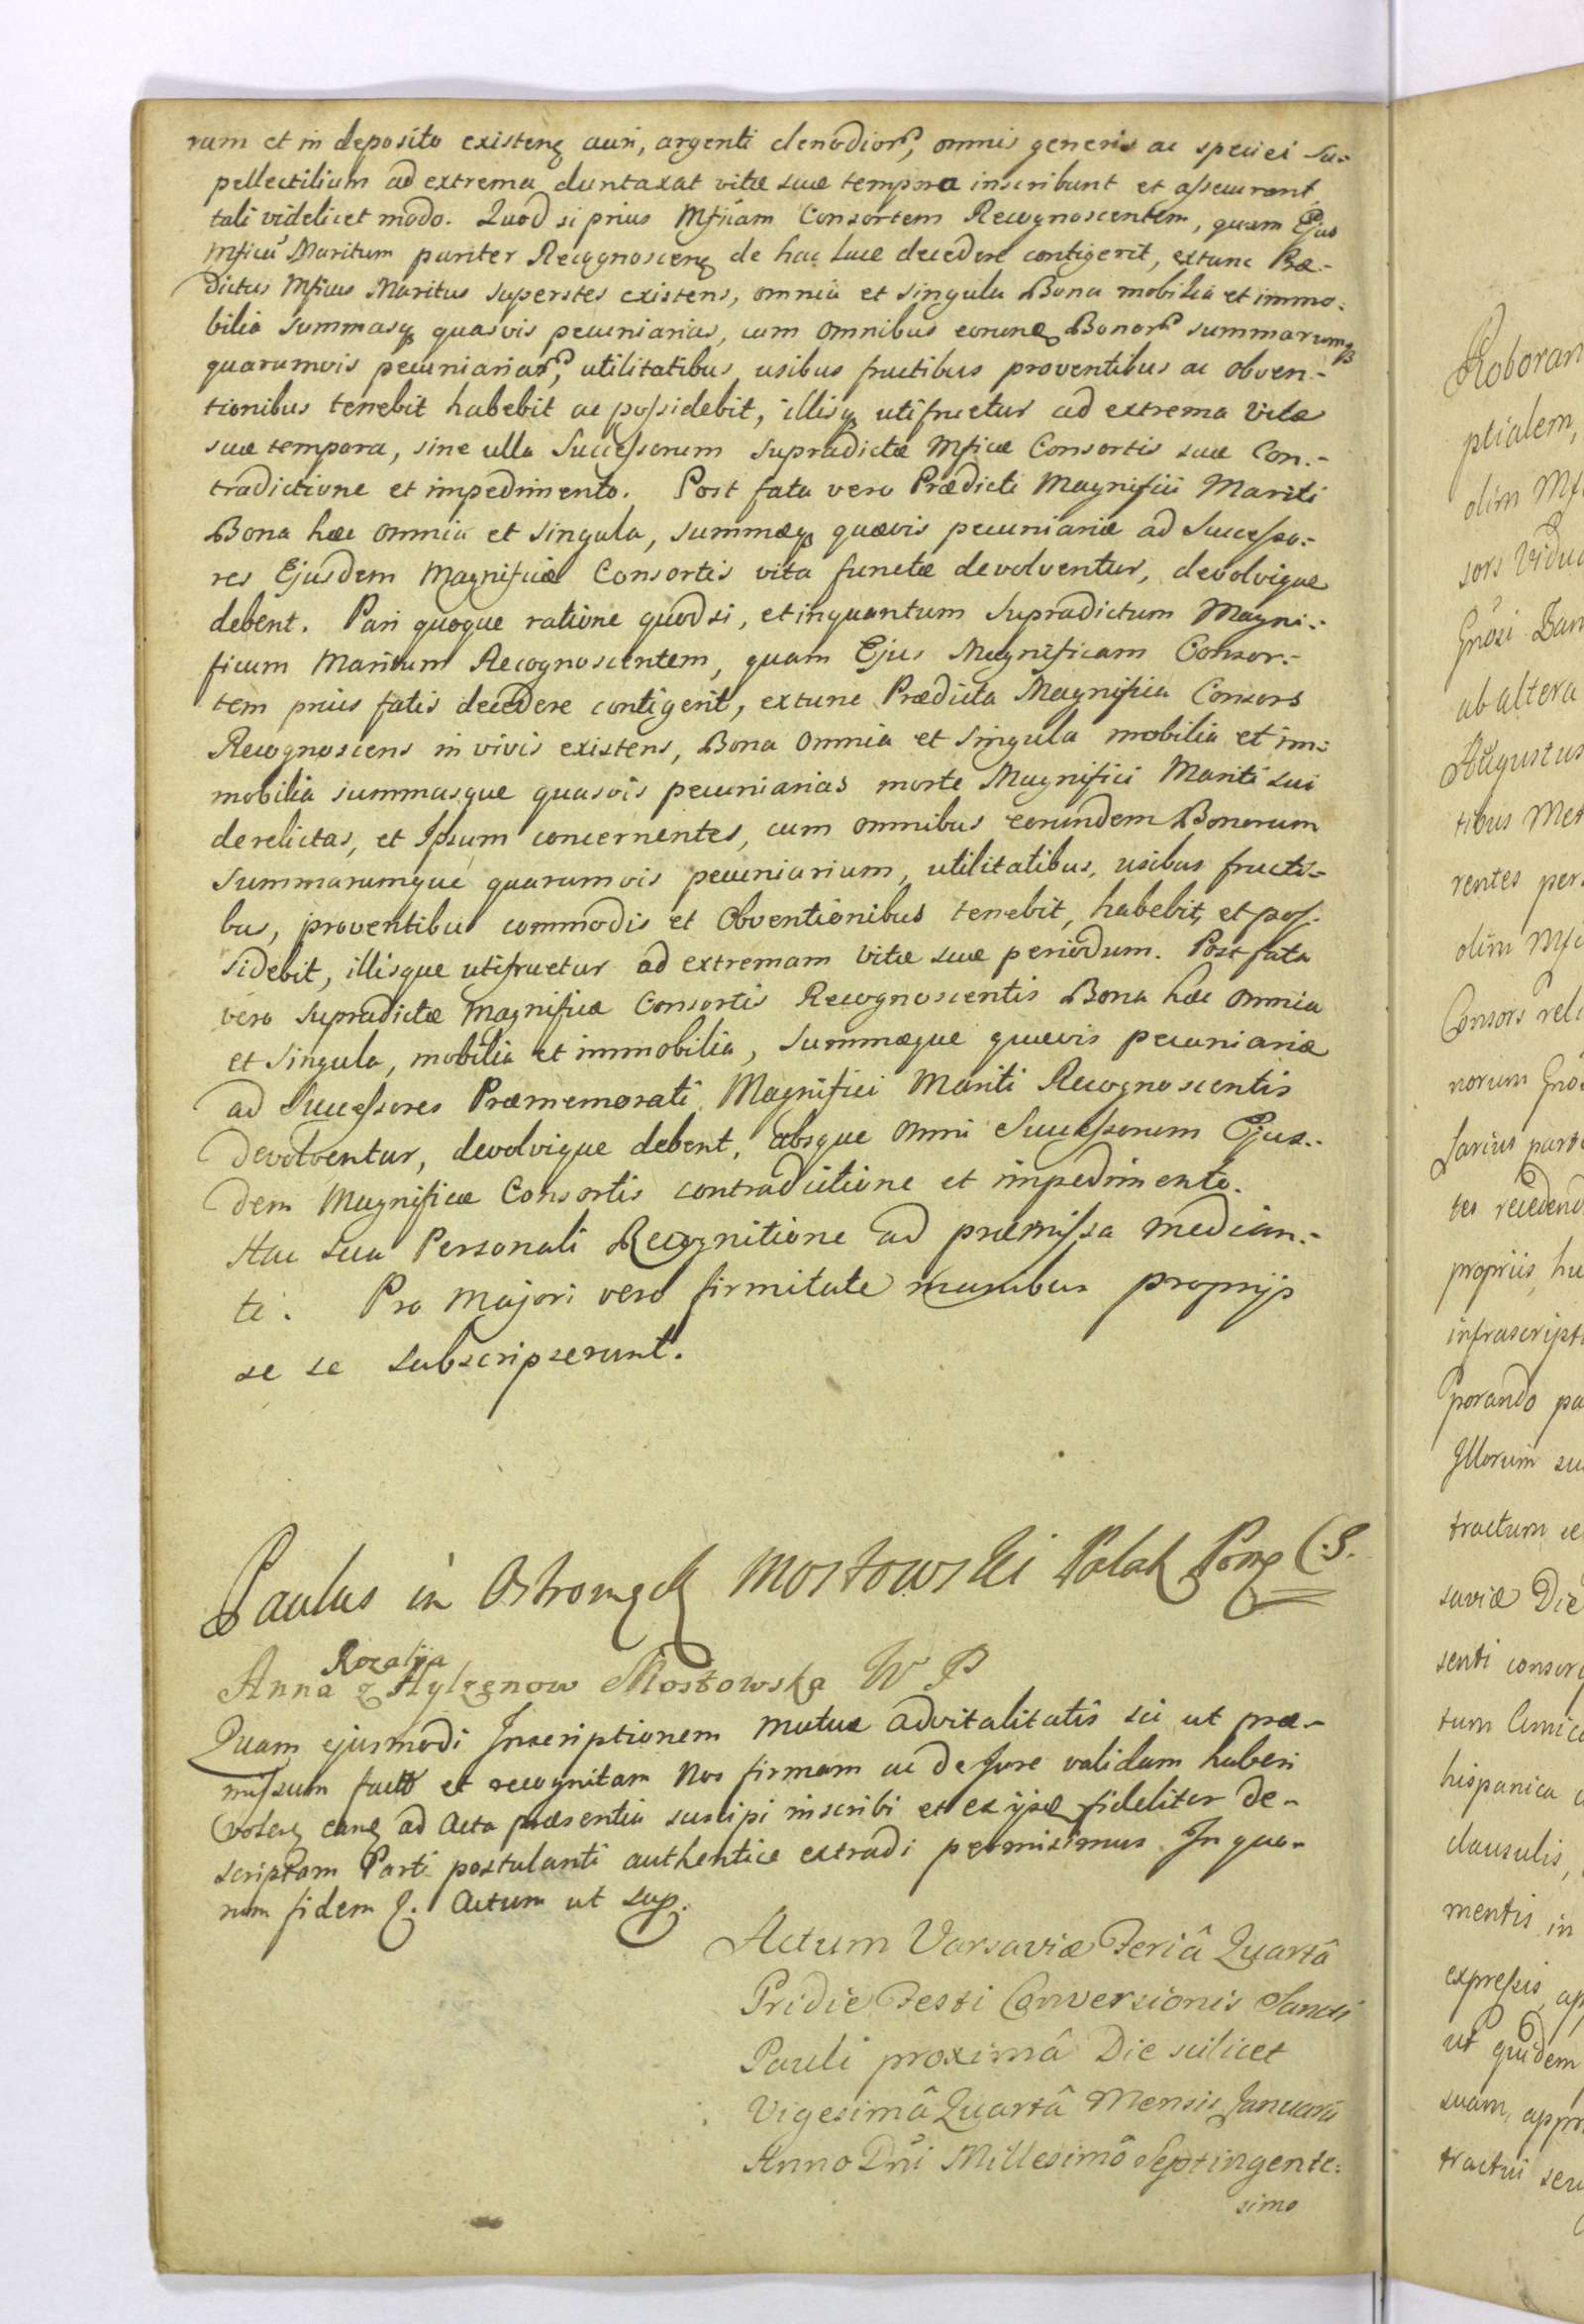 rum et in deposito existenę auri, argenti clenodior, omnis generis ac speciei su-
pellectilium ad extrema duntaxat vitæ suæ tempora inscribunt et assecurant
tali videlicet modo. Quod si prius Mficam Consortem Recognoscentem, quam Ejus
Mficũ Maritum pariter Recognoscenę de hac luce decedere contigerit, extunc Præ-
dictus Mficus Maritus superstes existens, omnia et singula Bona mobilia et immo-
bilia summasq quasvis pecuniarias, cum omnibus eorundę Bonor summarumq
quarumvis pecuniariar, utilitatibus, usibus fructibus proventibus ac obven-
tionibus tenebit habebit ac possidebit, illisq utifruetur ad extrema vitæ
suæ tempora, sine ulla Successorum supradictæ Mficæ Consortis suæ Con-
tradictione et impedimento. Post fata vero Prædicti Magnifici Mariti
Bona hæc omnia et singula, summæq quævis pecuniariæ ad Successo-
res Ejusdem Magnificæ Consortis vita functæ devolventur, devolvique
debent. Pari quoque ratione quod si, et inquantum supradictum Magni-
ficum Maritum Recognoscentem, quam Ejus Magnificam Consor-
tem prius fatis decedere contigerit, extunc Prædicta Magnifica Consors
Recognoscens in vivis existens, Bona omnia et singula mobilia et im-
mobilia summasque quasvis pecuniarias morte Magnifici Mariti sui
derelictas, et Ipsum concernentes, cum omnibus eorundem Bonorum
Summarumque quarumvis pecuniarium, utilitatibus, usibus fructi-
bus, proventibus commodis et Obventionibus tenebit, habebit, et pos-
sidebit, illisque utifruetur ad extremam vitæ suæ periodum. Post fata
vero supradictæ Magnificæ Consortis Recognoscentis Bona hæc omnia
et singula, mobilia et immobilia, summæque quævis pecuniariæ
ad Successores Præmemorati Magnifici Mariti Recognoscentis
devolventur, devolvique debent, absque omni Successorum Ejus-
dem Magnificæ Consortis contradictione et impedimento.
Hac sua Personali Recognitione ad præmissa median-
te. Pro Majori vero firmitate manibus proprijs
se se subscripserunt.
Paulus in Ostromęck Mostowski Palat Pomę C.S.
Rozalija
Anna z Hylzenow Mostowska W P
Quam ejusmodi Inscriptionem mutuæ advitalitatis sic ut præ-
missum facto et recognitam Nos firmam ac de Jure validam haberi
volenę eanę ad Acta præsentia suscipi inscribi et ex ijsdę fideliter de-
scriptam Parti postulanti authentice extradi permisimus. In quo-
rum fidem &. Actum ut sup.
Actum Varsaviæ Feriâ Quartâ
Pridie Festi Conversionis Sancti
Pauli proximâ Die scilicet
Vigesimâ Quartâ Mensis Januarii
Anno Dñi Millesimô Septingente-
simo
Roboran
ptialem,
olim Mf
sors Vidu
Gñosi Dan
ab altera
Augustus
tibus Met
rentes per
olim Mfc
Consors reli
norum Gño
Sarius parte
tes recedend
propriis, hu
infrascript
porando pa
Illorum su
tractum ce
saviæ Die
senti conscr
tum Amica
hispanica
clausulis,
mentis in
expressis, ap
ut quidem
suam, appr
tractui seu